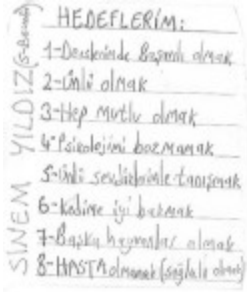 HEDEFLERİM:
1-Derslerimde Başarılı olmak
2-ünlü olmak
3-Hep mutlu olmak
4-Psikolojimi bozmamak
5-ünlü sevdiklerimle tanışmak
6-Kedime iyi bakmak
7-Başka hayvanlar almak
8-HASTA olmamak (sağlıklı olmak)
SINEM YILDIZ